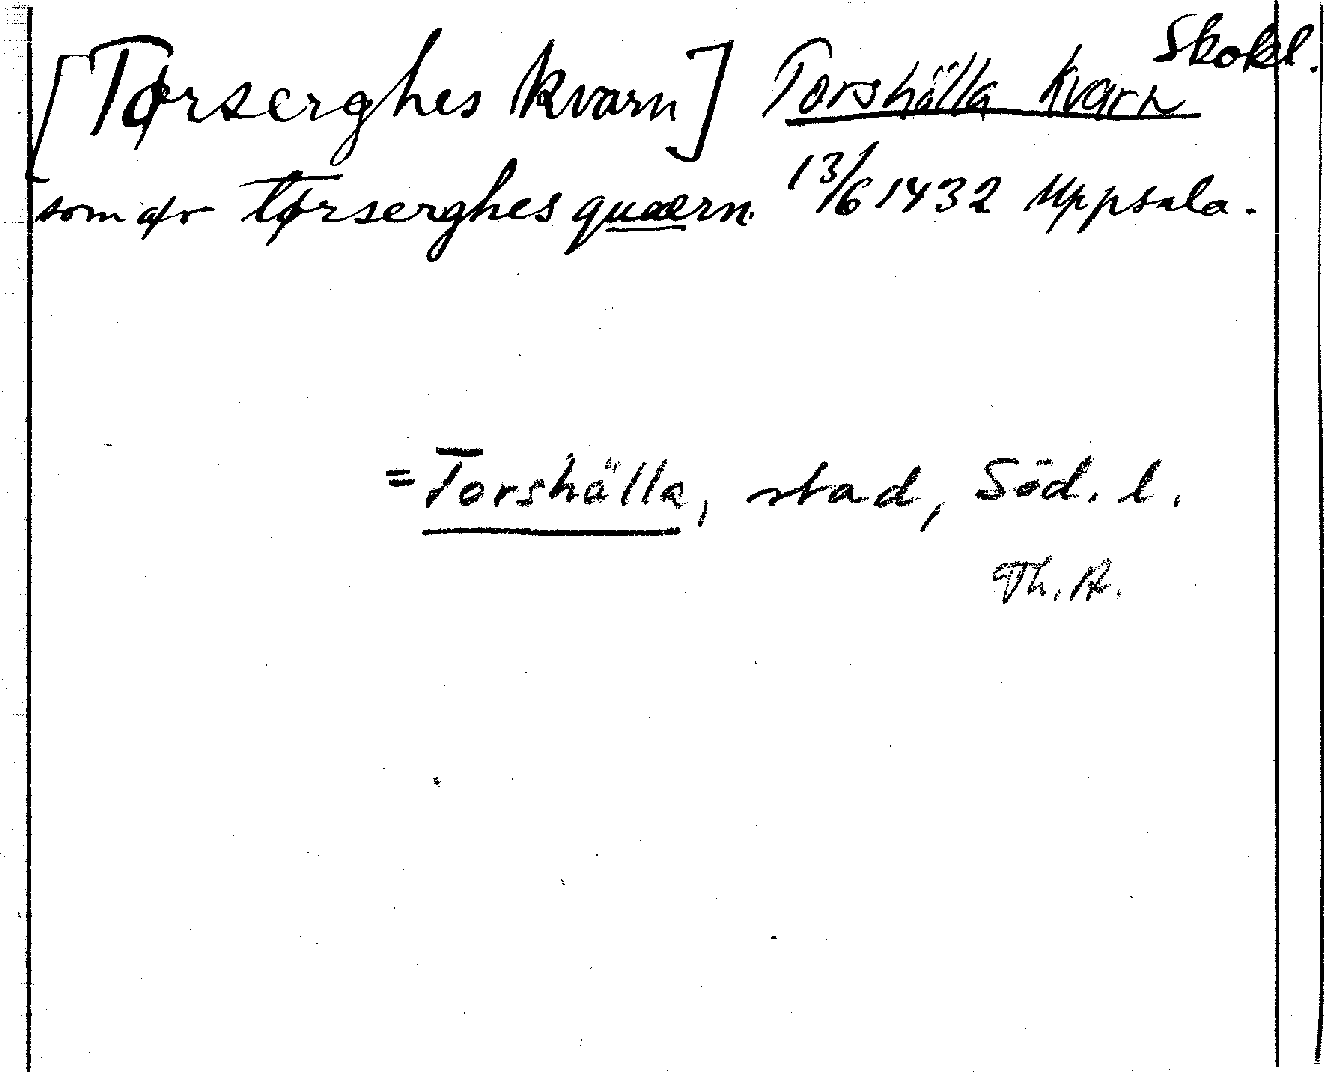 Skokl.
[Tørserghes kvarn] Torshälla kvarn
som ør tørserghes quærn. 13/6 1432 Uppsala.
= Torshälla, stad, Söd. l.
Th. A.